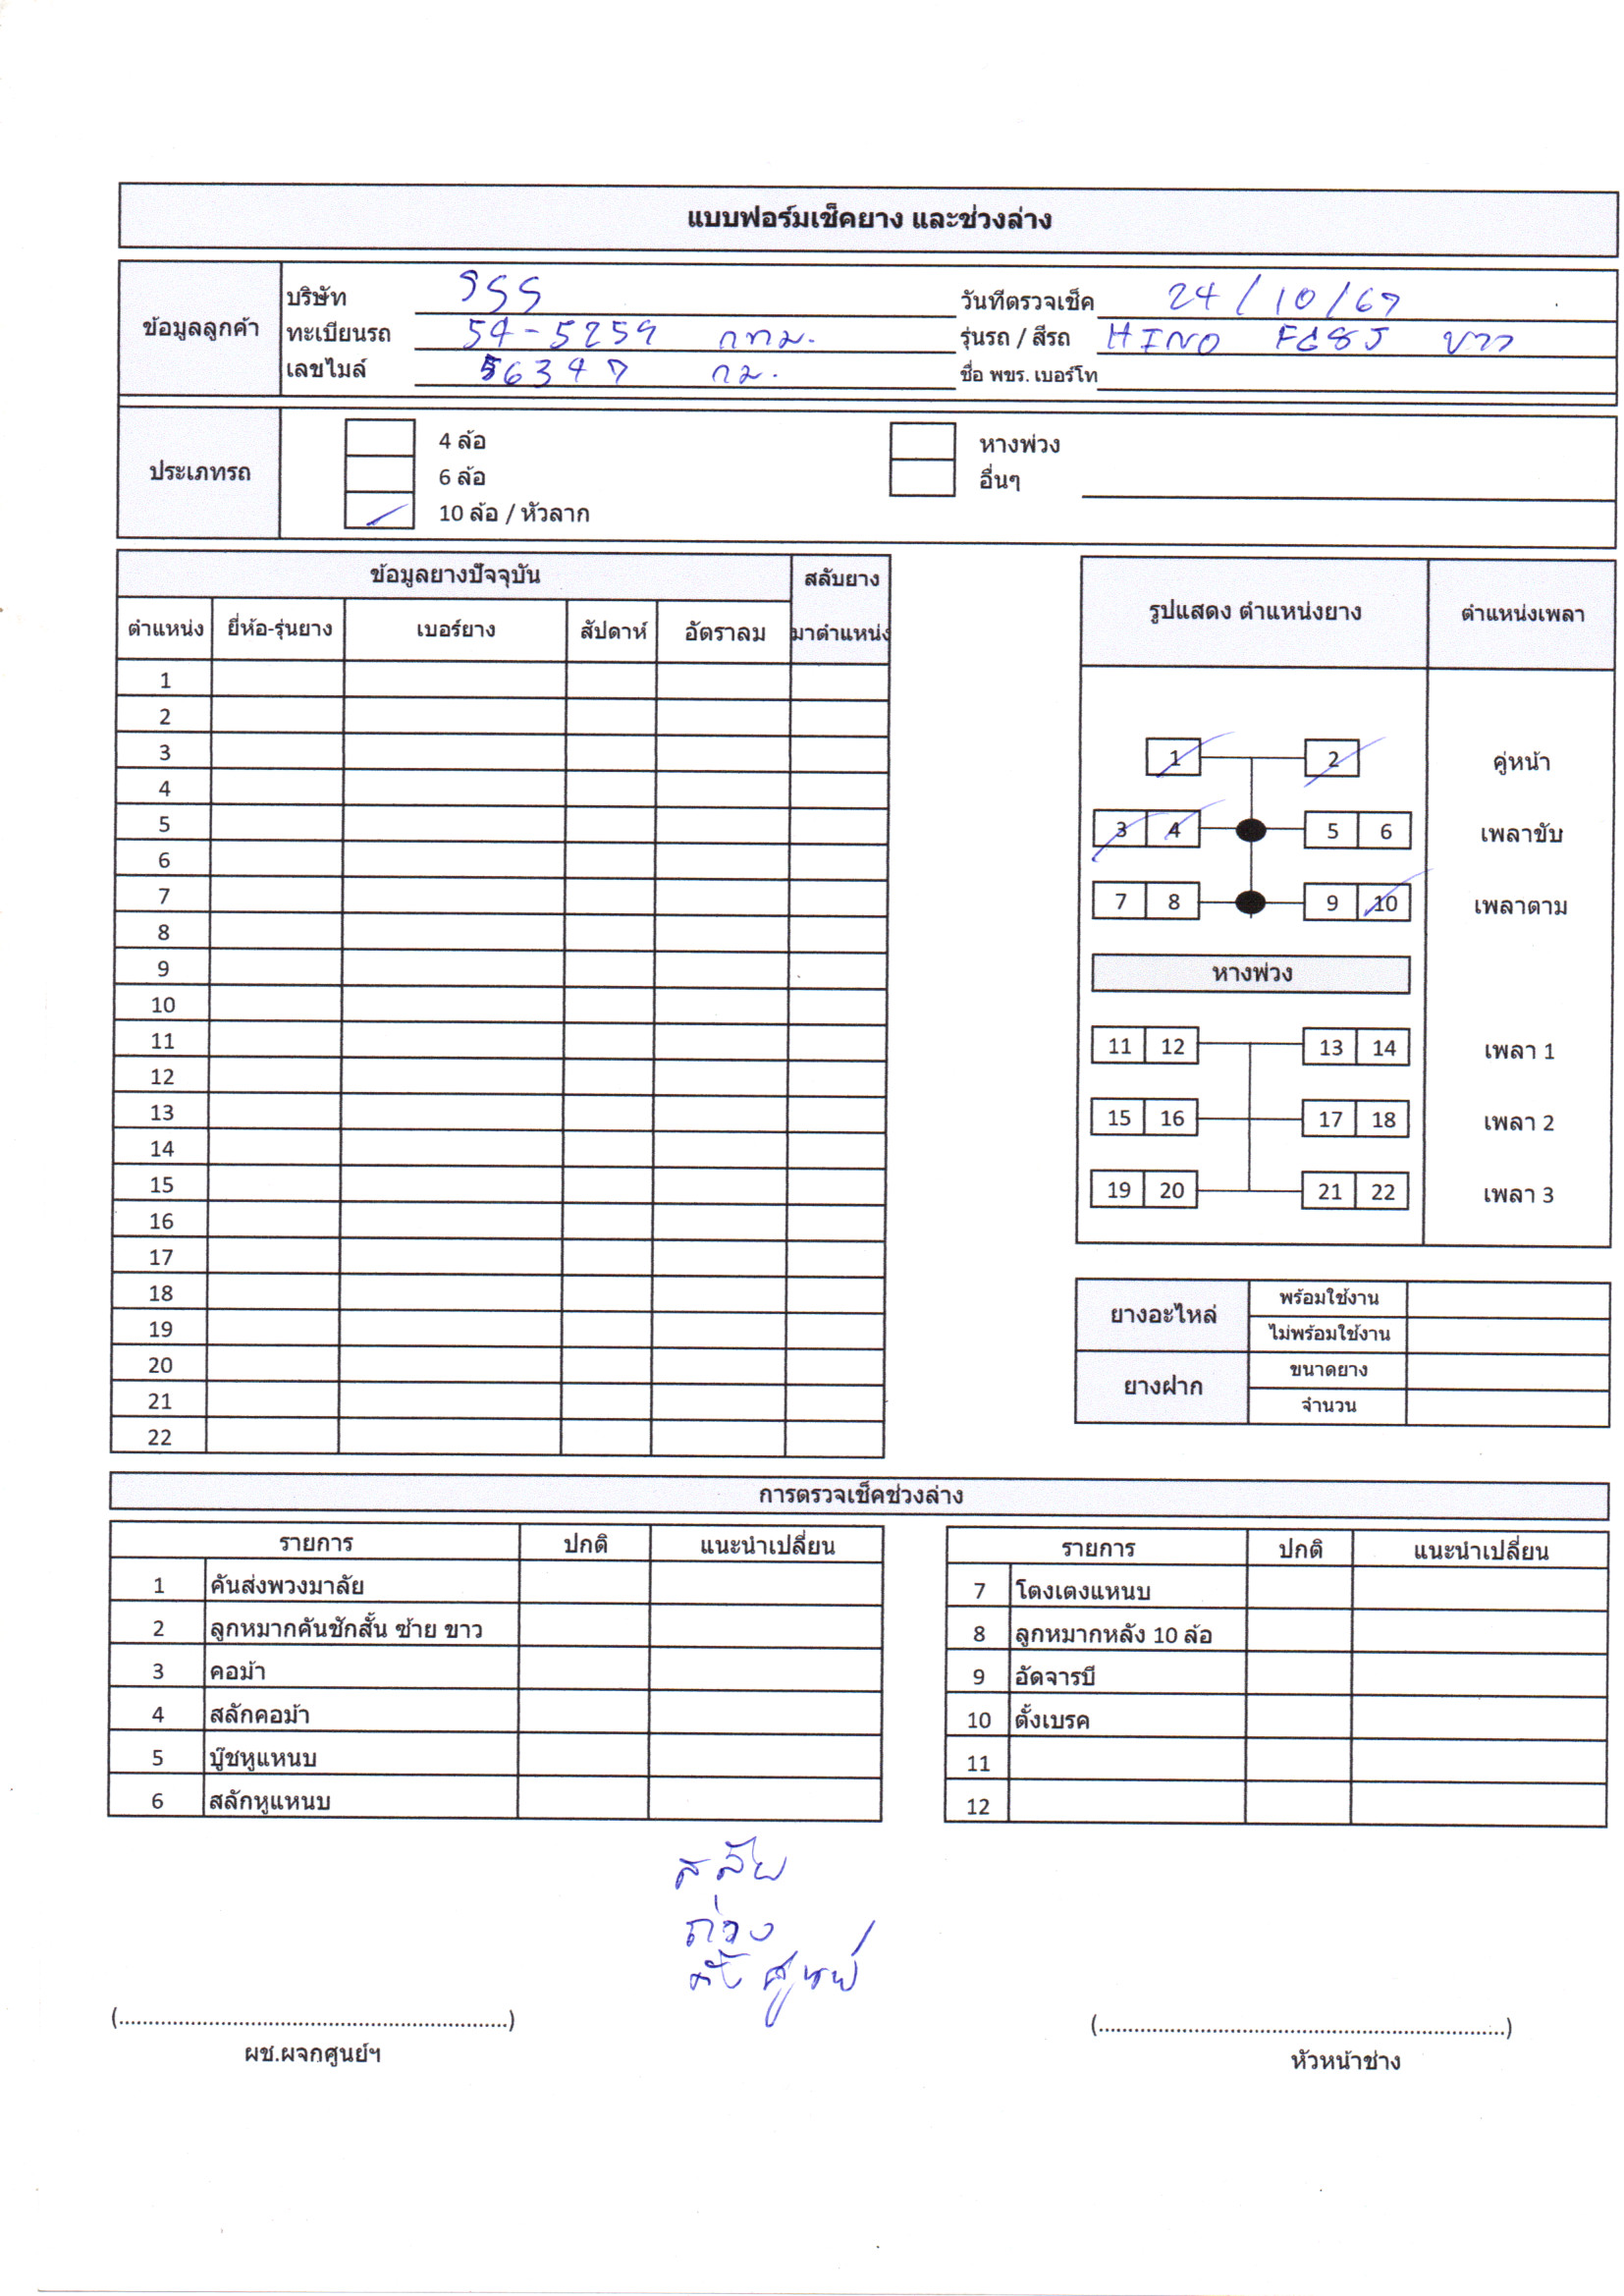 แบบฟอร์มเช็คยาง และช่วงล่าง
ข้อมูลลูกค้า
บริษัท วันที่ตรวจเช็ค 24/10/67
ทะเบียนรถ 54-5259 กทม. รุ่นรถ / สีรถ HINO FG8J ขาว
เลขไมล์ 56347 กม. ชื่อ พขร. เบอร์โท
ประเภทรถ
4 ล้อ หางพ่วง
6 ล้อ อื่นๆ
10 ล้อ / หัวลาก
ข้อมูลยางปัจจุบัน สลับยาง
ตำแหน่ง ยี่ห้อ-รุ่นยาง เบอร์ยาง สัปดาห์ อัตราลม มาตำแหน่ง
1
2
3
4
5
6
7
8
9
10
11
12
13
14
15
16
17
18
19
20
21
22
รูปแสดง ตำแหน่งยาง ตำแหน่งเพลา
1 2 คู่หน้า
3 4 5 6 เพลาขับ
7 8 9 10 เพลาตาม
หางพ่วง
11 12 13 14 เพลา 1
15 16 17 18 เพลา 2
19 20 21 22 เพลา 3
ยางอะไหล่ พร้อมใช้งาน
ไม่พร้อมใช้งาน
ยางฝาก ขนาดยาง
จำนวน
การตรวจเช็คช่วงล่าง
รายการ ปกติ แนะนำเปลี่ยน
1 คันส่งพวงมาลัย
2 ลูกหมากคันชักสั้น ซ้าย ขาว
3 คอม้า
4 สลักคอม้า
5 บู๊ชหูแหนบ
6 สลักหูแหนบ
รายการ ปกติ แนะนำเปลี่ยน
7 โตงเตงแหนบ
8 ลูกหมากหลัง 10 ล้อ
9 อัดจารบี
10 ตั้งเบรค
11
12
สลับ
ถ่วง
ตั้งศูนย์
(..................................................................)
ผช.ผจกศูนย์ฯ
(..................................................................)
หัวหน้าช่าง